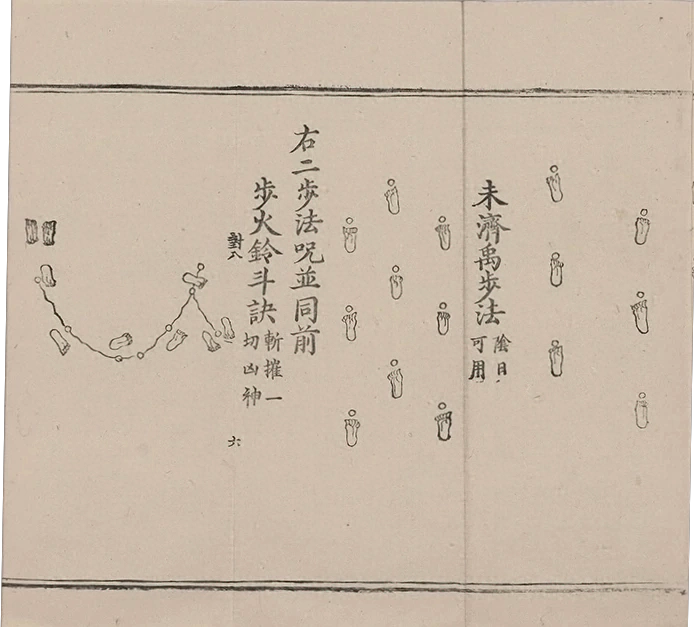 未濟禹步法
陰日
可用
右二步法呪並同前
步火鈴斗訣
斬摧一
切凶神
對八
六